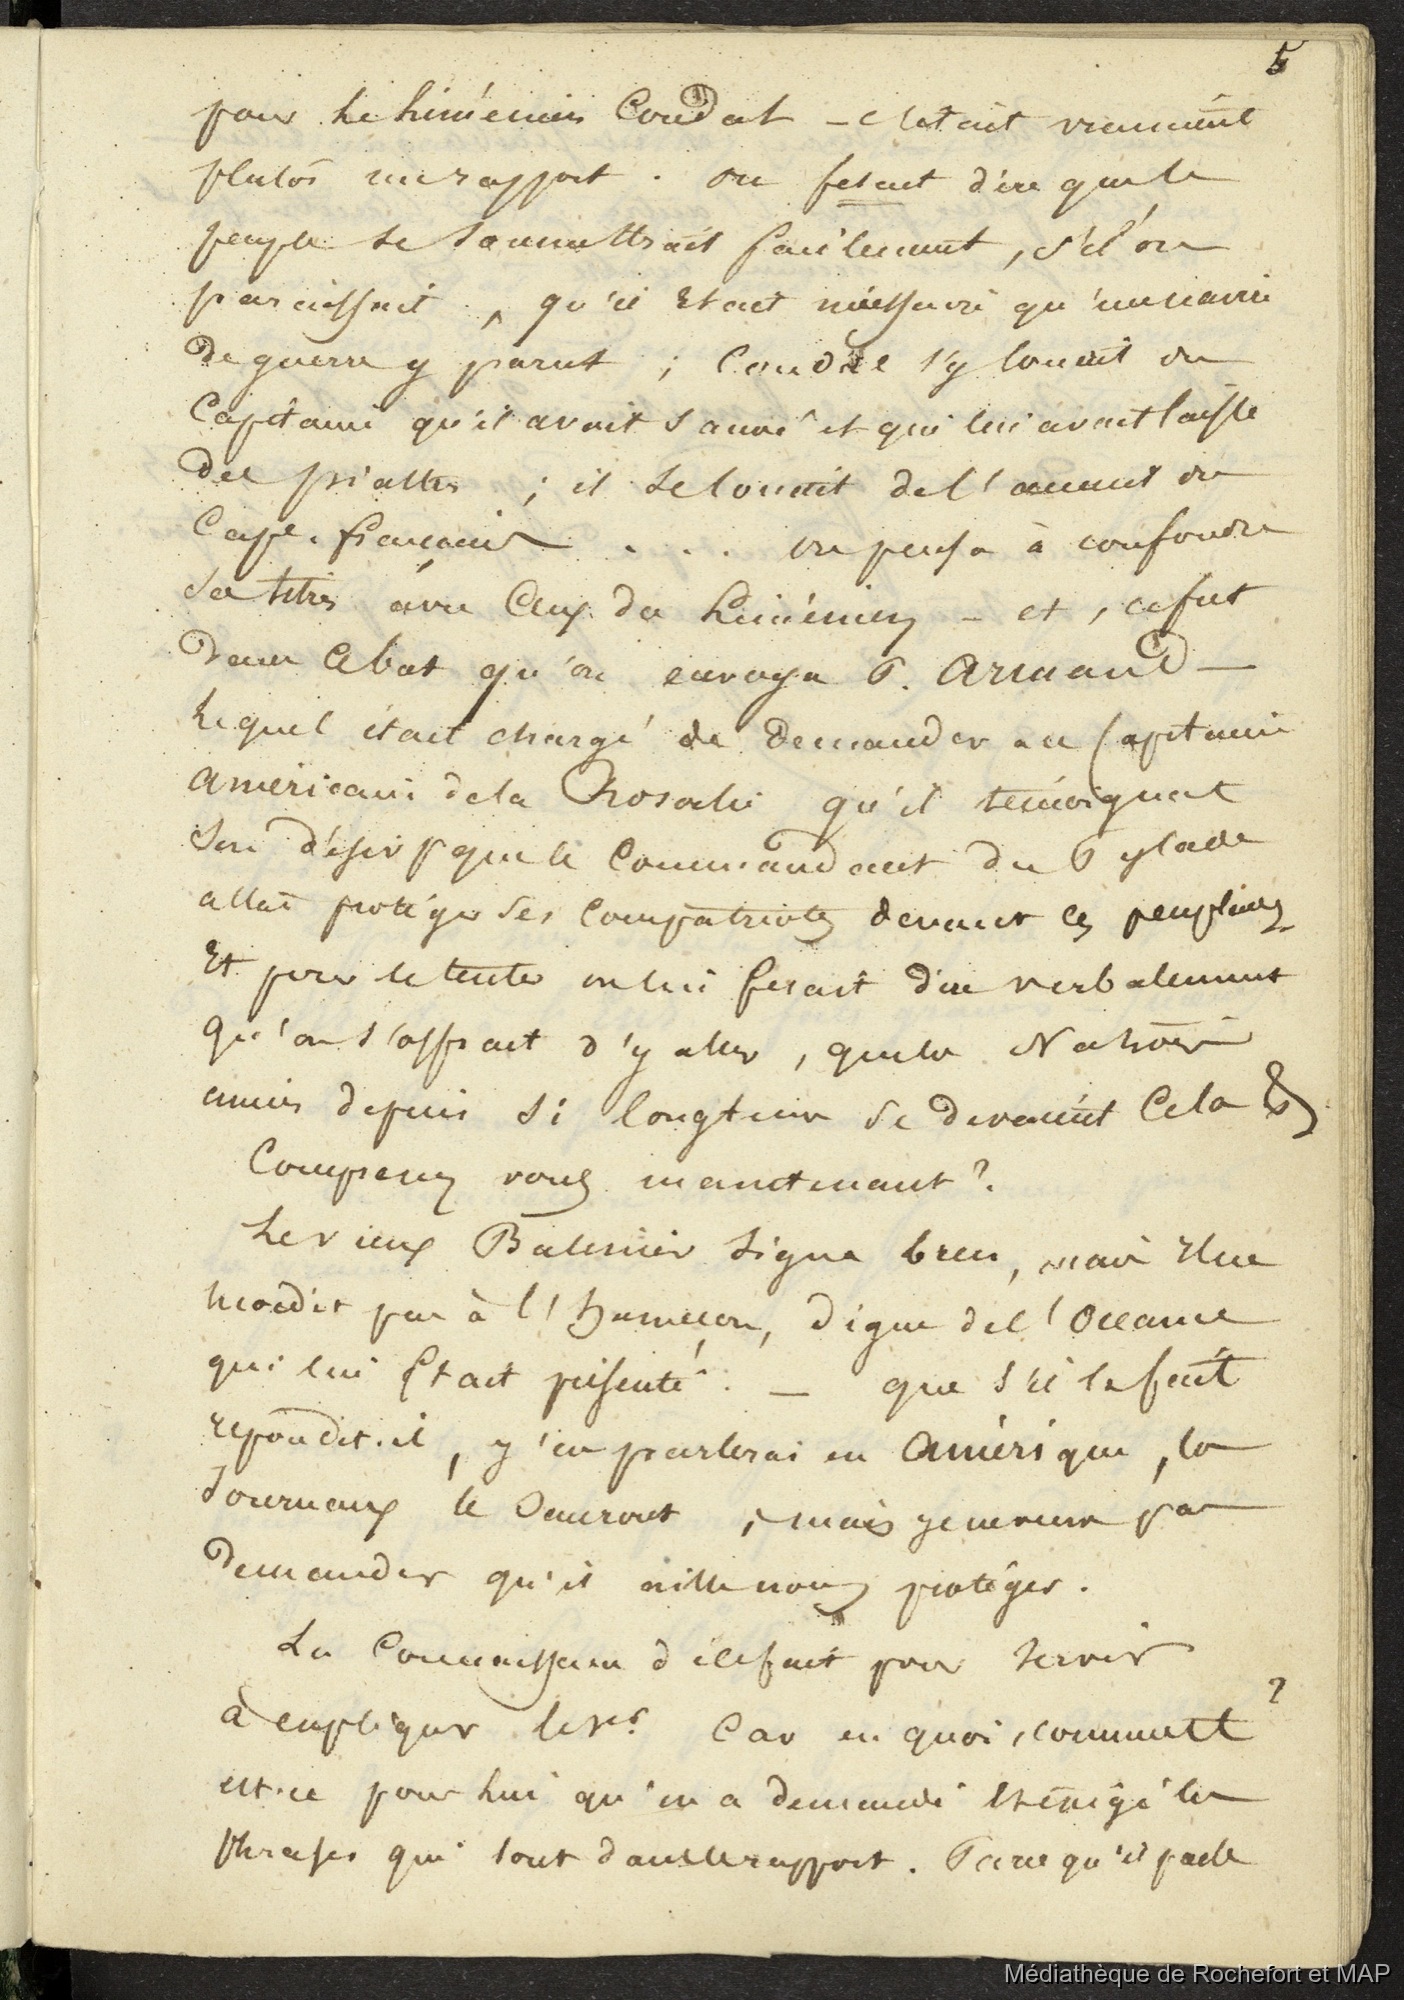 5
pour le Liménien Coudat – c'etait vraiment
plutôt un rapport. on fesait dire que le
peuple se soumettrait facilement, s'il on
paraissait, qu'il etait néessaire qu'un navire
de guerre y parut ; s'y louait du
Capitaine qu'il avait sauvé et qui lui avait laissé
des ; il se louait de l' du
Cape. français . . . on pensa à confondre
ses titres avec Ceux du Liménien – et, ce fut
dans ce but qu'on envoya P. Armand –
Lequel était chargé de demander au Capitaine
américain de la qu'il témoignat
son désir que le Commandant du Pylade
allat protéger ses Compatriotes devant ces peuplades
Et pour le tenter on lui fesait dire verbalement
qu'on s'offrait d'y aller, que les Nations
amies depuis si longtems se devaient Cela &
Comprenez vous maintenant ?
Le vieux signa bien, mais Il ne
mordit pas à l'hameçon, digne de l'Oceanie
qui lui Etait présenté. – que s'il le fait
repondit-il, j'en parlerai en Amérique, les
Journaux le Sauront, mais je ne veux pas
demander qu'il aille nous protéger.
La Connaissance d'ile fait pour servir
à expliquer le reste. Car en quoi, comment ?
est-ce pour Lui qu'on a demandé Et exigé les
phrases qui sont dans le rapport. Parce qu'il parle
Médiathèque de Rochefort et MAP